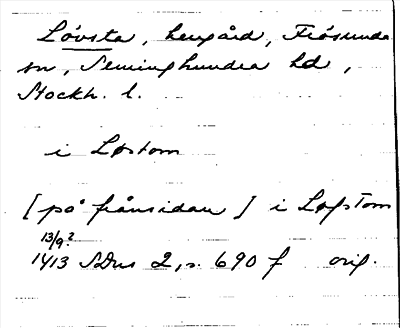 Lövsta, herrgård, Frösunda
sn, Seminghundra hd,
Stockh. l.
i Løstom
[på frånsidan] i Løfstom
13/9?
1413 SDns 2, s. 690 f orig.